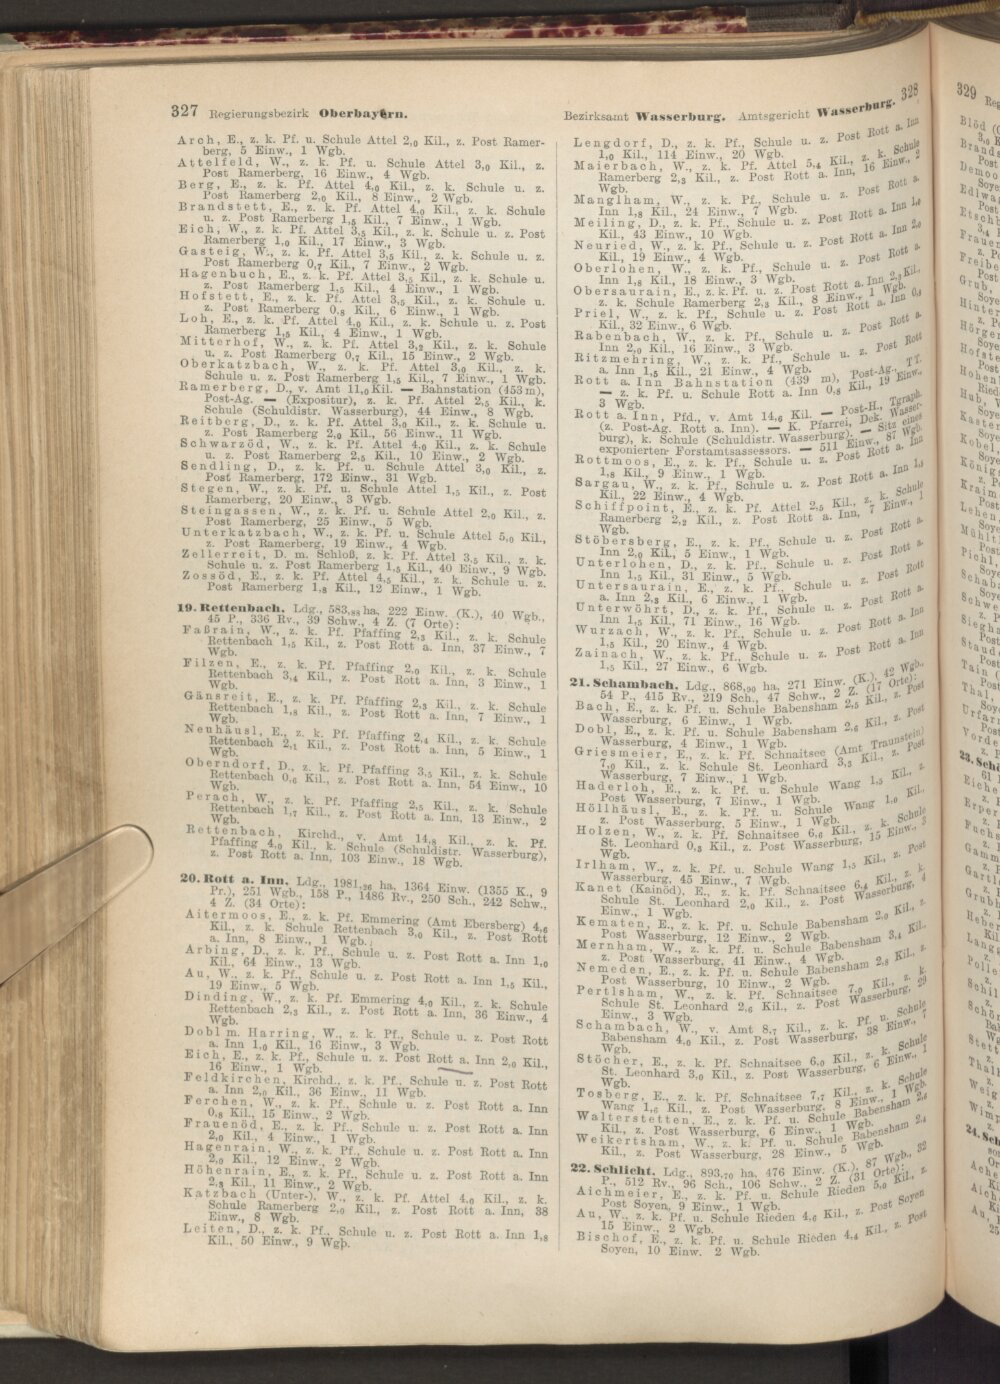 327 Regierungsbezirk Oberbayern.
Arch, E., z. k. Pf. u. Schule Attel 2,0 Kil., z. Post Ramer-
berg, 5 Einw., 1 Wgb.
Attelfeld, W., z. k. Pf. u. Schule Attel 3,0 Kil., z.
Post Ramerberg, 16 Einw., 4 Wgb.
Berg, E., z. k. Pf. Attel 4,0 Kil., z. k. Schule u. z.
Post Ramerberg 2,0 Kil., 8 Einw., 2 Wgb.
Brandstett, E., z. k. Pf. Attel 4,0 Kil., z. k. Schule
u. z. Post Ramerberg 1,5 Kil., 7 Einw., 1 Wgb.
Eich, W., z. k. Pf. Attel 3,5 Kil., z. k. Schule u. z. Post
Ramerberg 1,0 Kil., 17 Einw., 3 Wgb.
Gasteig, W., z. k. Pf. Attel 3,5 Kil., z. k. Schule u. z.
Post Ramerberg 0,7 Kil., 7 Einw., 2 Wgb.
Hagenbuch, E., z. k. Pf. Attel 3,5 Kil., z. k. Schule u.
z. Post Ramerberg 1,5 Kil., 4 Einw., 1 Wgb.
Hofstett, E., z. k. Pf. Attel 3,5 Kil., z. k. Schule u.
z. Post Ramerberg 0,8 Kil., 6 Einw., 1 Wgb.
Loh, E., z. k. Pf. Attel 4,0 Kil., z. k. Schule u. z. Post
Ramerberg 1,5 Kil., 4 Einw., 1 Wgb.
Mitterhof, W., z. k. Pf. Attel 3,2 Kil., z. k. Schule
u. z. Post Ramerberg 0,7 Kil., 15 Einw., 2 Wgb.
Oberkatzbach, W., z. k. Pf. Attel 3,0 Kil., z. k.
Schule u. z. Post Ramerberg 1,5 Kil., 7 Einw., 1 Wgb.
Ramerberg, D., v. Amt 11,0 Kil. — Bahnstation (453 m),
Post-Ag. — (Expositur), z. k. Pf. Attel 2,5 Kil., k.
Schule (Schuldistr. Wasserburg), 44 Einw., 8 Wgb.
Reitberg, D., z. k. Pf. Attel 3,0 Kil., z. k. Schule u.
z. Post Ramerberg 2,0 Kil., 56 Einw., 11 Wgb.
Schwarzöd, W., z. k. Pf. Attel 4,0 Kil., z. k. Schule
u. z. Post Ramerberg 2,5 Kil., 10 Einw., 2 Wgb.
Sendling, D., z. k. Pf. u. Schule Attel 3,0 Kil., z.
Post Ramerberg, 172 Einw., 31 Wgb.
Stegen, W., z. k. Pf. u. Schule Attel 1,5 Kil., z. Post
Ramerberg, 20 Einw., 3 Wgb.
Steingassen, W., z. k. Pf. u. Schule Attel 2,0 Kil., z.
Post Ramerberg, 25 Einw., 5 Wgb.
Unterkatzbach, W., z. k. Pf. u. Schule Attel 5,0 Kil.,
z. Post Ramerberg, 19 Einw., 4 Wgb.
Zellerreit, D. m. Schloß, z. k. Pf. Attel 3,5 Kil., z. k.
Schule u. z. Post Ramerberg 1,5 Kil., 40 Einw., 9 Wgb.
Zossöd, E., z. k. Pf. Attel 4,5 Kil., z. k. Schule u. z.
Post Ramerberg 1,8 Kil., 12 Einw., 1 Wgb.
19. Rettenbach, Ldg., 583,88 ha, 222 Einw. (K.), 40 Wgb.,
45 P., 336 Rv., 39 Schw., 4 Z. (7 Orte):
Faßrain, W., z. k. Pf. Pfaffing 2,3 Kil., z. k. Schule
Rettenbach 1,5 Kil., z. Post Rott a. Inn, 37 Einw., 7
Wgb.
Filzen, E., z. k. Pf. Pfaffing 2,0 Kil., z. k. Schule
Rettenbach 3,4 Kil., z. Post Rott a. Inn, 3 Einw., 1
Wgb.
Gänsreit, E., z. k. Pf. Pfaffing 2,3 Kil., z. k. Schule
Rettenbach 1,8 Kil., z. Post Rott a. Inn, 7 Einw., 1
Wgb.
Neuhäusl, E., z. k. Pf. Pfaffing 2,4 Kil., z. k. Schule
Rettenbach 2,1 Kil., z. Post Rott a. Inn, 5 Einw., 1
Wgb.
Oberndorf, D., z. k. Pf. Pfaffing 3,5 Kil., z. k. Schule
Rettenbach 0,6 Kil., z. Post Rott a. Inn, 54 Einw., 10
Wgb.
Perach, W., z. k. Pf. Pfaffing 2,5 Kil., z. k. Schule
Rettenbach 1,7 Kil., z. Post Rott a. Inn, 13 Einw., 2
Wgb.
Rettenbach, Kirchd., v. Amt 14,8 Kil., z. k. Pf.
Pfaffing 4,0 Kil., k. Schule (Schuldistr. Wasserburg),
z. Post Rott a. Inn, 103 Einw., 18 Wgb.
20. Rott a. Inn, Ldg., 1981,26 ha, 1364 Einw. (1355 K., 9
Pr.), 251 Wgb., 158 P., 1486 Rv., 250 Sch., 242 Schw.,
4 Z. (34 Orte):
Aitermoos, E., z. k. Pf. Emmering (Amt Ebersberg) 4,6
Kil., z. k. Schule Rettenbach 3,0 Kil., z. Post Rott
a. Inn, 8 Einw., 1 Wgb.
Arbing, D., z. k. Pf., Schule u. z. Post Rott a. Inn 1,0
Kil., 64 Einw., 13 Wgb.
Au, W., z. k. Pf., Schule u. z. Post Rott a. Inn 1,5 Kil.,
19 Einw., 5 Wgb.
Dinding, W., z. k. Pf. Emmering 4,0 Kil., z. k. Schule
Rettenbach 2,3 Kil., z. Post Rott a. Inn, 36 Einw., 4
Wgb.
Dobl m. Harring, W., z. k. Pf., Schule u. z. Post Rott
a. Inn 1,0 Kil., 16 Einw., 3 Wgb.
Eich, E., z. k. Pf., Schule u. z. Post Rott a. Inn 2,0 Kil.,
16 Einw., 1 Wgb.
Feldkirchen, Kirchd., z. k. Pf., Schule u. z. Post Rott
a. Inn 2,0 Kil., 36 Einw., 11 Wgb.
Ferchen, W., z. k. Pf., Schule u. z. Post Rott a. Inn
0,8 Kil., 15 Einw., 2 Wgb.
Frauenöd, E., z. k. Pf., Schule u. z. Post Rott a. Inn
2,0 Kil., 4 Einw., 1 Wgb.
Hagenrain, W., z. k. Pf., Schule u. z. Post Rott a. Inn
2,0 Kil., 12 Einw., 2 Wgb.
Höhenrain, E., z. k. Pf., Schule u. z. Post Rott a. Inn
2,3 Kil., 11 Einw., 2 Wgb.
Katzbach (Unter-), W., z. k. Pf. Attel 4,0 Kil., z. k.
Schule Ramerberg 2,0 Kil., z. Post Rott a. Inn, 38
Einw., 8 Wgb.
Leiten, D., z. k. Pf., Schule u. z. Post Rott a. Inn 1,8
Kil., 50 Einw., 9 Wgb.
Bezirksamt Wasserburg. Amtsgericht Wasserburg. 328
Lengdorf, D., z. k. Pf., Schule u. z. Post Rott a. Inn
1,0 Kil., 114 Einw., 20 Wgb.
Maierbach, W., z. k. Pf. Attel 5,4 Kil., z. k. Schule
Ramerberg 2,3 Kil., z. Post Rott a. Inn, 16 Einw., 2
Wgb.
Manglham, W., z. k. Pf., Schule u. z. Post Rott a.
Inn 1,8 Kil., 24 Einw., 7 Wgb.
Meiling, D., z. k. Pf., Schule u. z. Post Rott a. Inn 1,0
Kil., 43 Einw., 10 Wgb.
Neuried, W., z. k. Pf., Schule u. z. Post Rott a. Inn 2,0
Kil., 19 Einw., 4 Wgb.
Oberlohen, W., z. k. Pf., Schule u. z. Post Rott a.
Inn 1,8 Kil., 18 Einw., 3 Wgb.
Obersaurain, E., z. k. Pf. u. z. Post Rott a. Inn 2,3 Kil.,
z. k. Schule Ramerberg 2,3 Kil., 8 Einw., 1 Wgb.
Priel, W., z. k. Pf., Schule u. z. Post Rott a. Inn 0,8
Kil., 32 Einw., 6 Wgb.
Rabenbach, W., z. k. Pf., Schule u. z. Post Rott a.
Inn 2,0 Kil., 16 Einw., 3 Wgb.
Ritzmehring, W., z. k. Pf., Schule u. z. Post Rott
a. Inn 1,5 Kil., 21 Einw., 4 Wgb.
Rott a. Inn Bahnstation (439 m), Post-Ag., TT.
— z. k. Pf. u. Schule Rott a. Inn 0,8 Kil., 19 Einw.,
3 Wgb.
Rott a. Inn, Pfd., v. Amt 14,6 Kil. — Post-H., Tgraph.
(z. Post-Ag. Rott a. Inn). — K. Pfarrei, Dek. Wasser-
burg), k. Schule (Schuldistr. Wasserburg). — Sitz eines
exponierten Forstamtsassessors. — 511 Einw., 87 Wgb.
Rottmoos, E., z. k. Pf., Schule u. z. Post Rott a. Inn
1,8 Kil., 9 Einw., 1 Wgb.
Sargau, W., z. k. Pf., Schule u. z. Post Rott a. Inn 1,3
Kil., 22 Einw., 4 Wgb.
Schiffpoint, E., z. k. Pf. Attel 2,5 Kil., z. k. Schule
Ramerberg 2,2 Kil., z. Post Rott a. Inn, 7 Einw., 1
Wgb.
Stöbersberg, E., z. k. Pf., Schule u. z. Post Rott a.
Inn 2,0 Kil., 5 Einw., 1 Wgb.
Unterlohen, D., z. k. Pf., Schule u. z. Post Rott a.
Inn 1,5 Kil., 31 Einw., 5 Wgb.
Untersaurain, E., z. k. Pf., Schule u. z. Post Rott
a. Inn 2,3 Kil., 6 Einw., 1 Wgb.
Unterwöhrt, D., z. k. Pf., Schule u. z. Post Rott a.
Inn 1,5 Kil., 71 Einw., 16 Wgb.
Wurzach, W., z. k. Pf., Schule u. z. Post Rott a. Inn
1,5 Kil., 20 Einw., 4 Wgb.
Zainach, W., z. k. Pf., Schule u. z. Post Rott a. Inn
1,5 Kil., 27 Einw., 6 Wgb.
21. Schambach, Ldg., 868,90 ha, 271 Einw. (K.), 42 Wgb.,
54 P., 415 Rv., 219 Sch., 47 Schw., 2 Z. (17 Orte):
Bach, E., z. k. Pf. u. Schule Babensham 2,5 Kil., z. Post
Wasserburg, 6 Einw., 1 Wgb.
Dobl, E., z. k. Pf. u. Schule Babensham 2,6 Kil., z. Post
Wasserburg, 4 Einw., 1 Wgb.
Griesmeier, E., z. k. Pf. Schnaitsee (Amt Traunstein)
7,0 Kil., z. k. Schule St. Leonhard 3,5 Kil., z. Post
Wasserburg, 7 Einw., 1 Wgb.
Haderloh, E., z. k. Pf. u. Schule Wang 1,5 Kil., z.
Post Wasserburg, 7 Einw., 1 Wgb.
Höllhäusl, E., z. k. Pf. u. Schule Wang 1,0 Kil.,
z. Post Wasserburg, 5 Einw., 1 Wgb.
Holzen, W., z. k. Pf. Schnaitsee 6,6 Kil., z. k. Schule
St. Leonhard 0,8 Kil., z. Post Wasserburg, 15 Einw., 3
Wgb.
Irlham, W., z. k. Pf. u. Schule Wang 1,5 Kil., z. Post
Wasserburg, 45 Einw., 7 Wgb.
Kanet (Kainöd), E., z. k. Pf. Schnaitsee 6,4 Kil., z. k.
Schule St. Leonhard 2,0 Kil., z. Post Wasserburg, 4
Einw., 1 Wgb.
Kematen, E., z. k. Pf. u. Schule Babensham 2,0 Kil., z.
Post Wasserburg, 12 Einw., 2 Wgb.
Mernham, W., z. k. Pf. u. Schule Babensham 3,4 Kil.,
z. Post Wasserburg, 41 Einw., 4 Wgb.
Nemeden, E., z. k. Pf. u. Schule Babensham 2,8 Kil., z.
Post Wasserburg, 10 Einw., 2 Wgb.
Pertlsham, W., z. k. Pf. Schnaitsee 7,0 Kil., z. k.
Schule St. Leonhard 2,6 Kil., z. Post Wasserburg, 29
Einw., 3 Wgb.
Schambach, W., v. Amt 8,7 Kil., z. k. Pf. u. Schule
Babensham 4,0 Kil., z. Post Wasserburg, 38 Einw., 7
Wgb.
Stöcher, E., z. k. Pf. Schnaitsee 6,0 Kil., z. k. Schule
St. Leonhard 3,0 Kil., z. Post Wasserburg, 6 Einw., 1
Wgb.
Tosberg, E., z. k. Pf. Schnaitsee 7,7 Kil., z. k. Schule
Wang 1,6 Kil., z. Post Wasserburg, 8 Einw., 1 Wgb.
Walterstetten, E., z. k. Pf. u. Schule Babensham 2,6
Kil., z. Post Wasserburg, 6 Einw., 1 Wgb.
Weikertsham, W., z. k. Pf. u. Schule Babensham 2,4
Kil., z. Post Wasserburg, 28 Einw., 5 Wgb.
22. Schlicht, Ldg., 893,70 ha, 476 Einw. (K.), 87 Wgb., 32
P., 512 Rv., 96 Sch., 106 Schw., 2 Z. (31 Orte):
Aichmeier, E., z. k. Pf. u. Schule Rieden 5,0 Kil., z.
Post Soyen, 9 Einw., 1 Wgb.
Au, W., z. k. Pf. u. Schule Rieden 4,6 Kil., z. Post Soyen
15 Einw., 2 Wgb.
Bischof, E., z. k. Pf. u. Schule Rieden 4,4 Kil., z. Post
Soyen, 10 Einw. 2 Wgb.
329